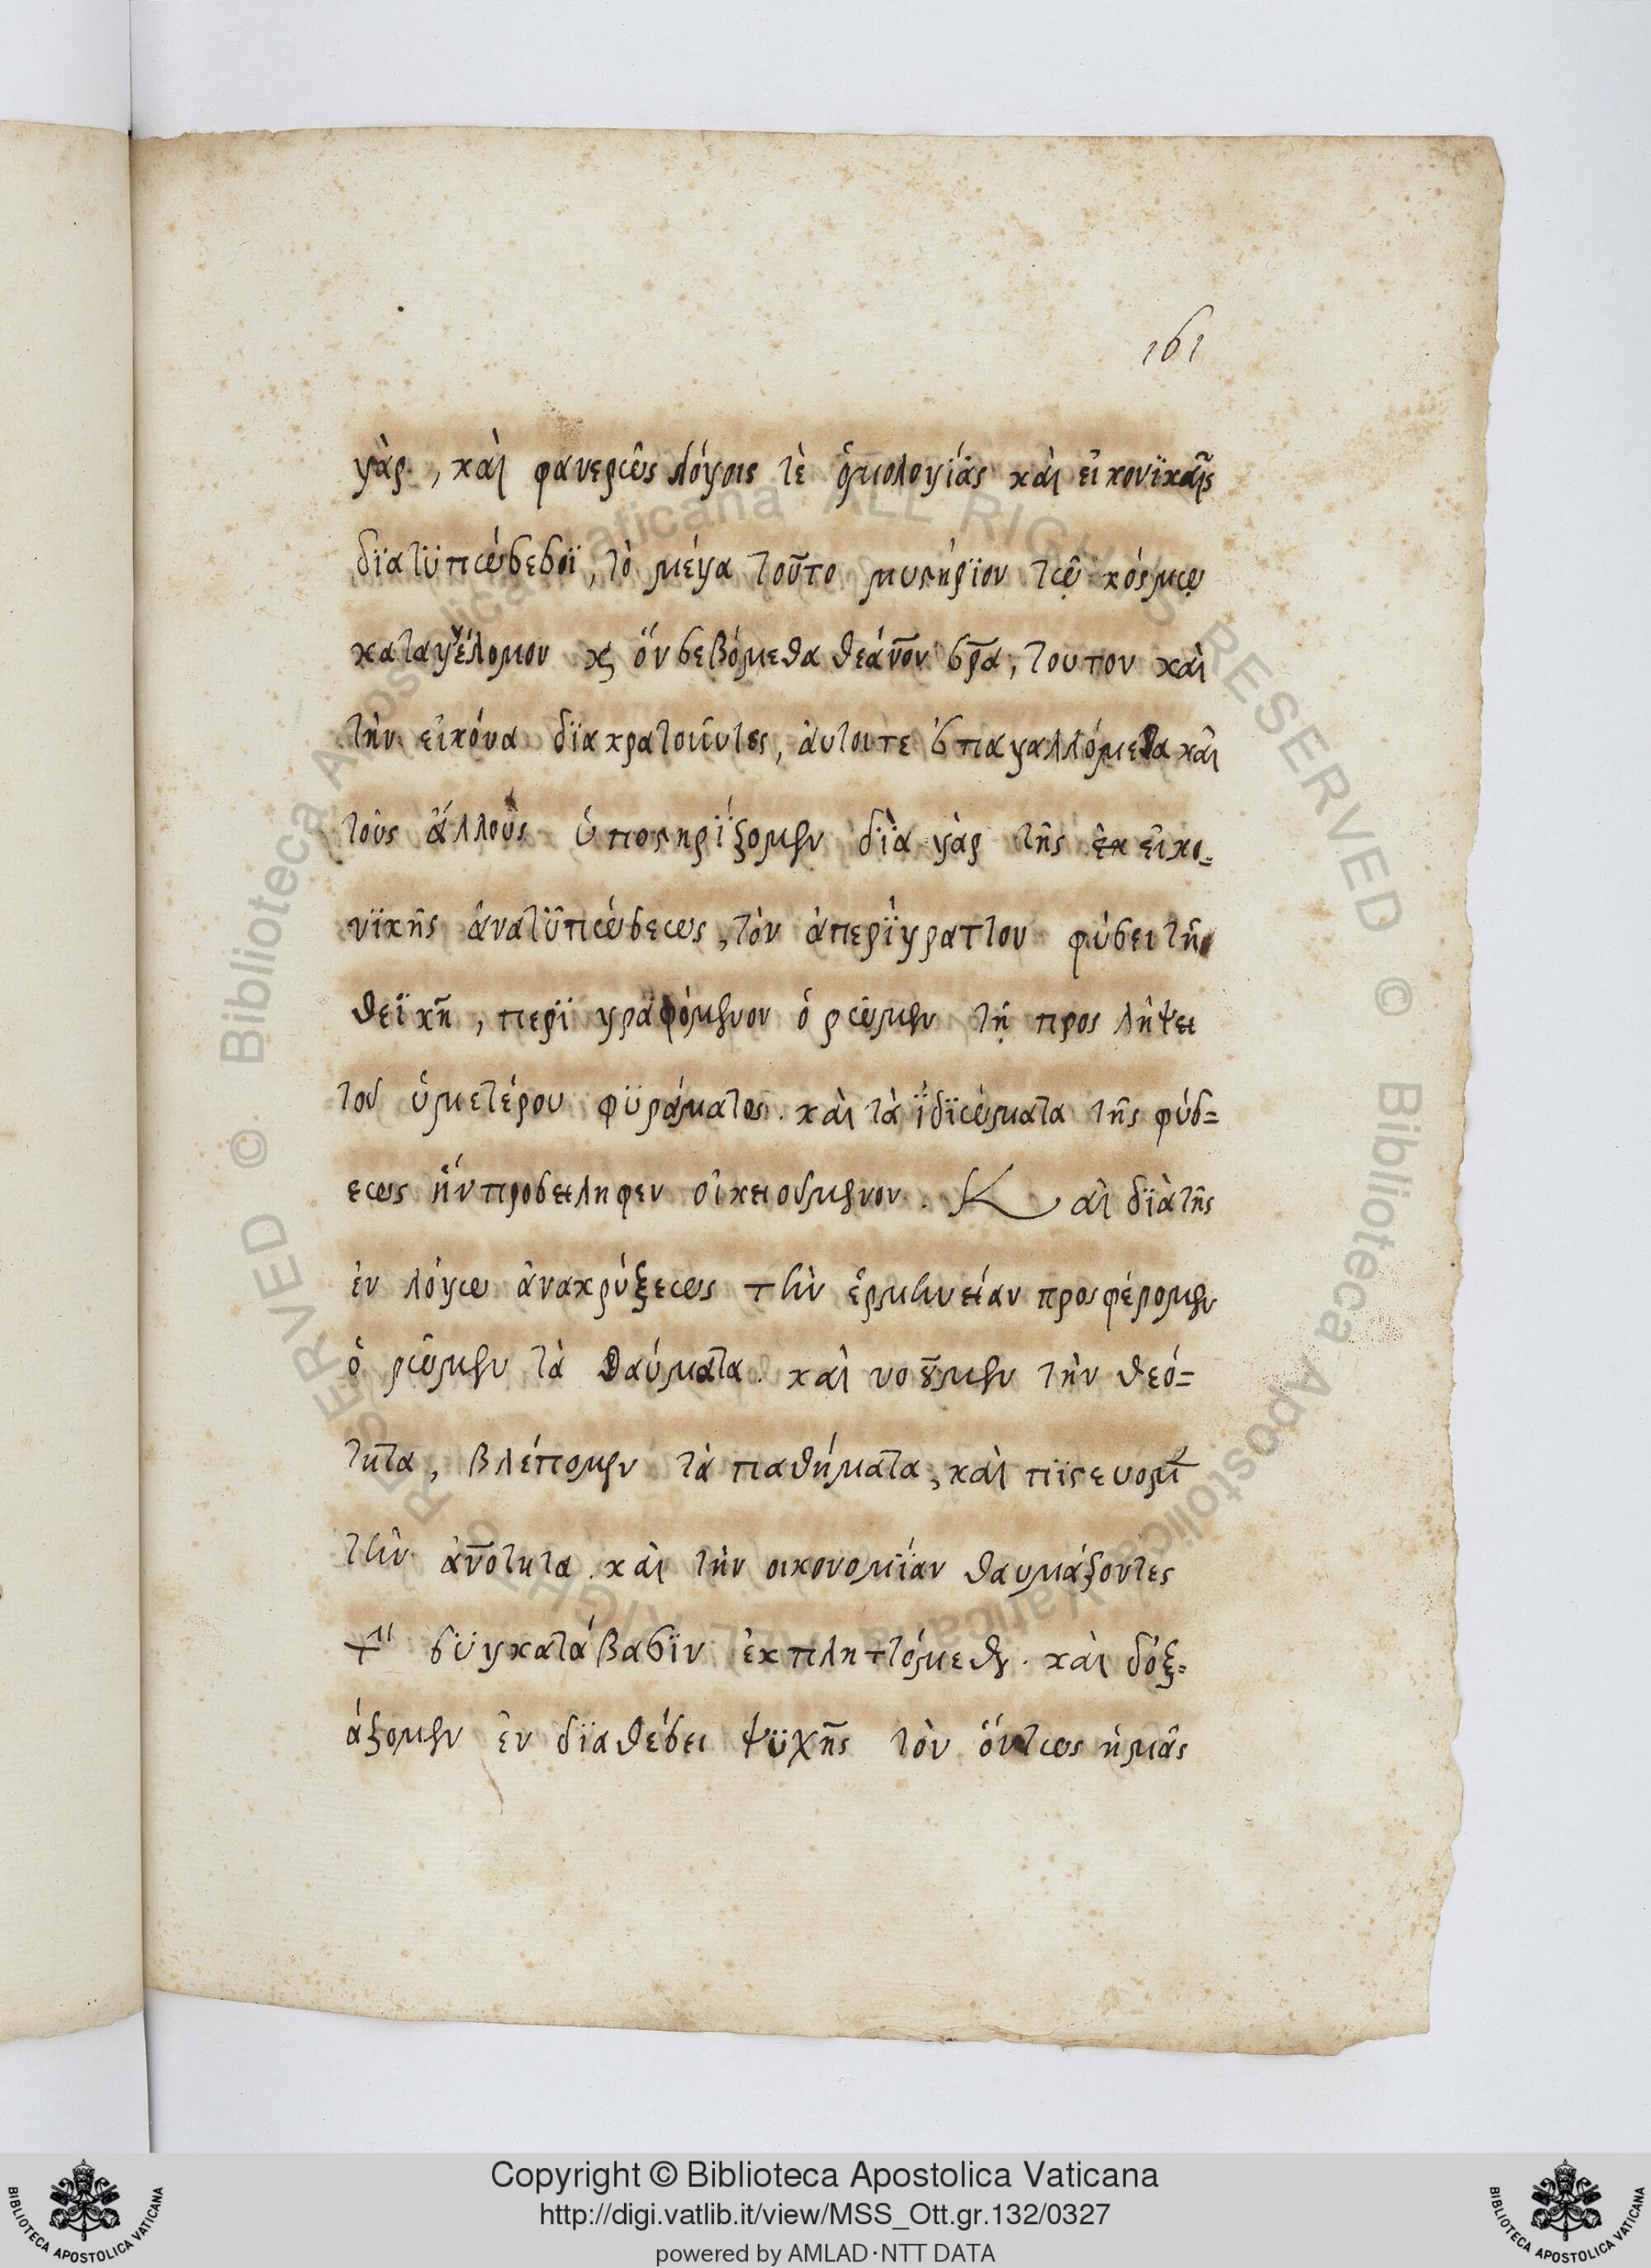 161
γὰρ, καὶ φανερῶς λόγοις τὲ ὁμολογίας καὶ εἰκονϊκαῖς
δϊατϋπώσεσοϊ, τὸ μέγα τοῦτο μυστήρϊον τῷ κόσμῳ
καταγέλομον κ ὅν σεβόμεθα θεάν̅ον σρ̅α, τουτον καὶ
τὴν εἰκόνα δϊακρατοῦντες, ἀυτοιτε ἐπαγαλλόμεθα καὶ
τοὺς ἄλλους ὑποστηρίζομεν δϊὰ γὰρ τῆς εἰκο=
νϊκῆς ἀνατϋπώσεως, τὸν ἀπερίγραπτον φύσει τῇ
θεϊκῇ, περϊ γραφόμενον ὁ ρῶμεν τῇ προς λήψει
τοῦ ὑμετέρου φϋράματος. καὶ τὰ ἰδϊώματα τῆς φύσ=
εως ἥν προσειληφεν οἰκειούμενον. Καὶ δϊὰ τῆς
ἐν λόγω ἀνακρύξεως τὴν ἑρμηνείαν προσφέρομεν
ὁ ρῶμεν τὰ θαύματα. καὶ νοοῦμεν τὴν θεό=
τητα, βλέπομεν τὰ παθήματα, καὶ πϊστευομ
τὴν ἀν̅οτητα. καὶ τὴν οικονομϊαν θαυμάζοντες
τ σϋγκατάβασϊν ἐκπληττόμεθα. καὶ δόξ=
άζομεν ἐν δϊαθέσει ψϋχῆς τὸν ὄντως ἡμᾶς
Copyright © Biblioteca Apostolica Vaticana
http://digi.vatlib.it/view/MSS_Ott.gr.132/0327
powered by AMLAD·NTT DATA
BIBLIOTECA APOSTOLICA VATICANA
BIBLIOTECA APOSTOLICA VATICANA